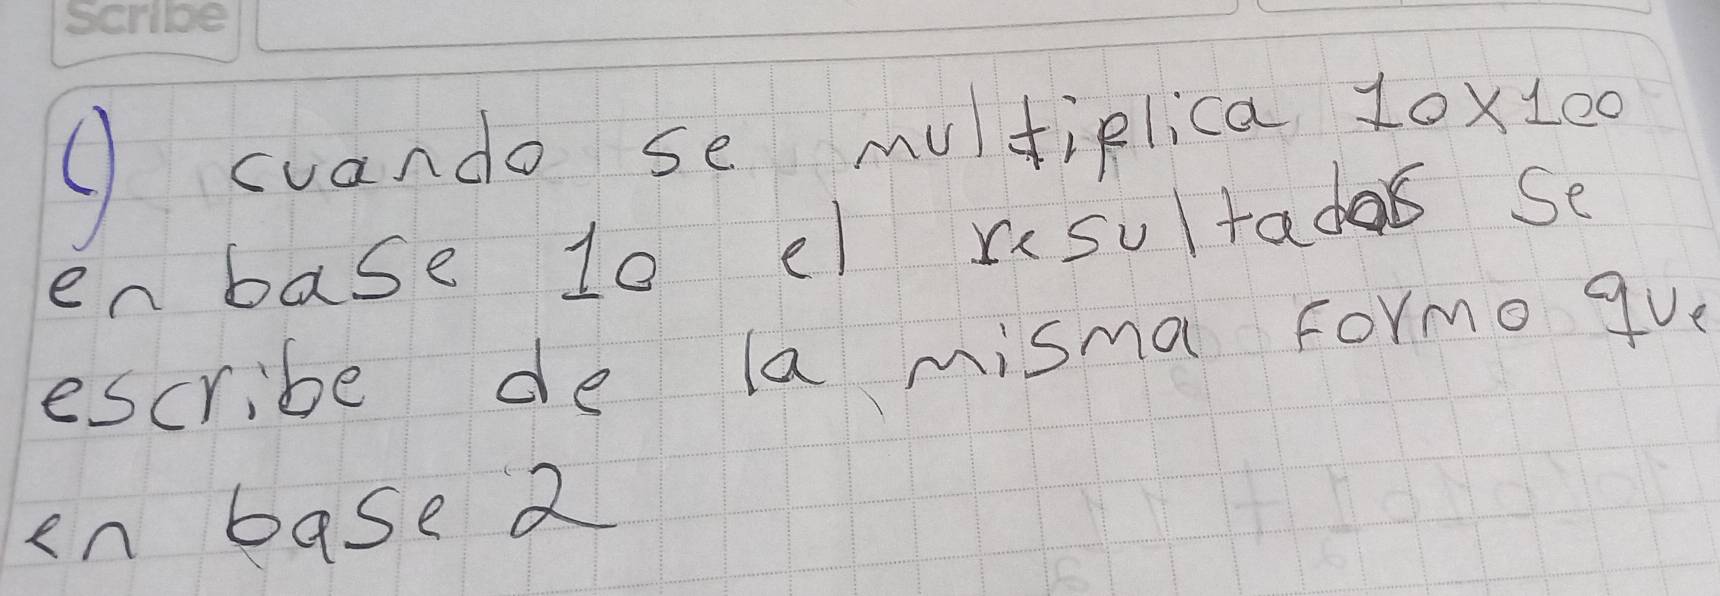 Scribe
9) cuando se multiplica 10x100
en base 10 el resultados se
escribe de la misma formo que
en base 2